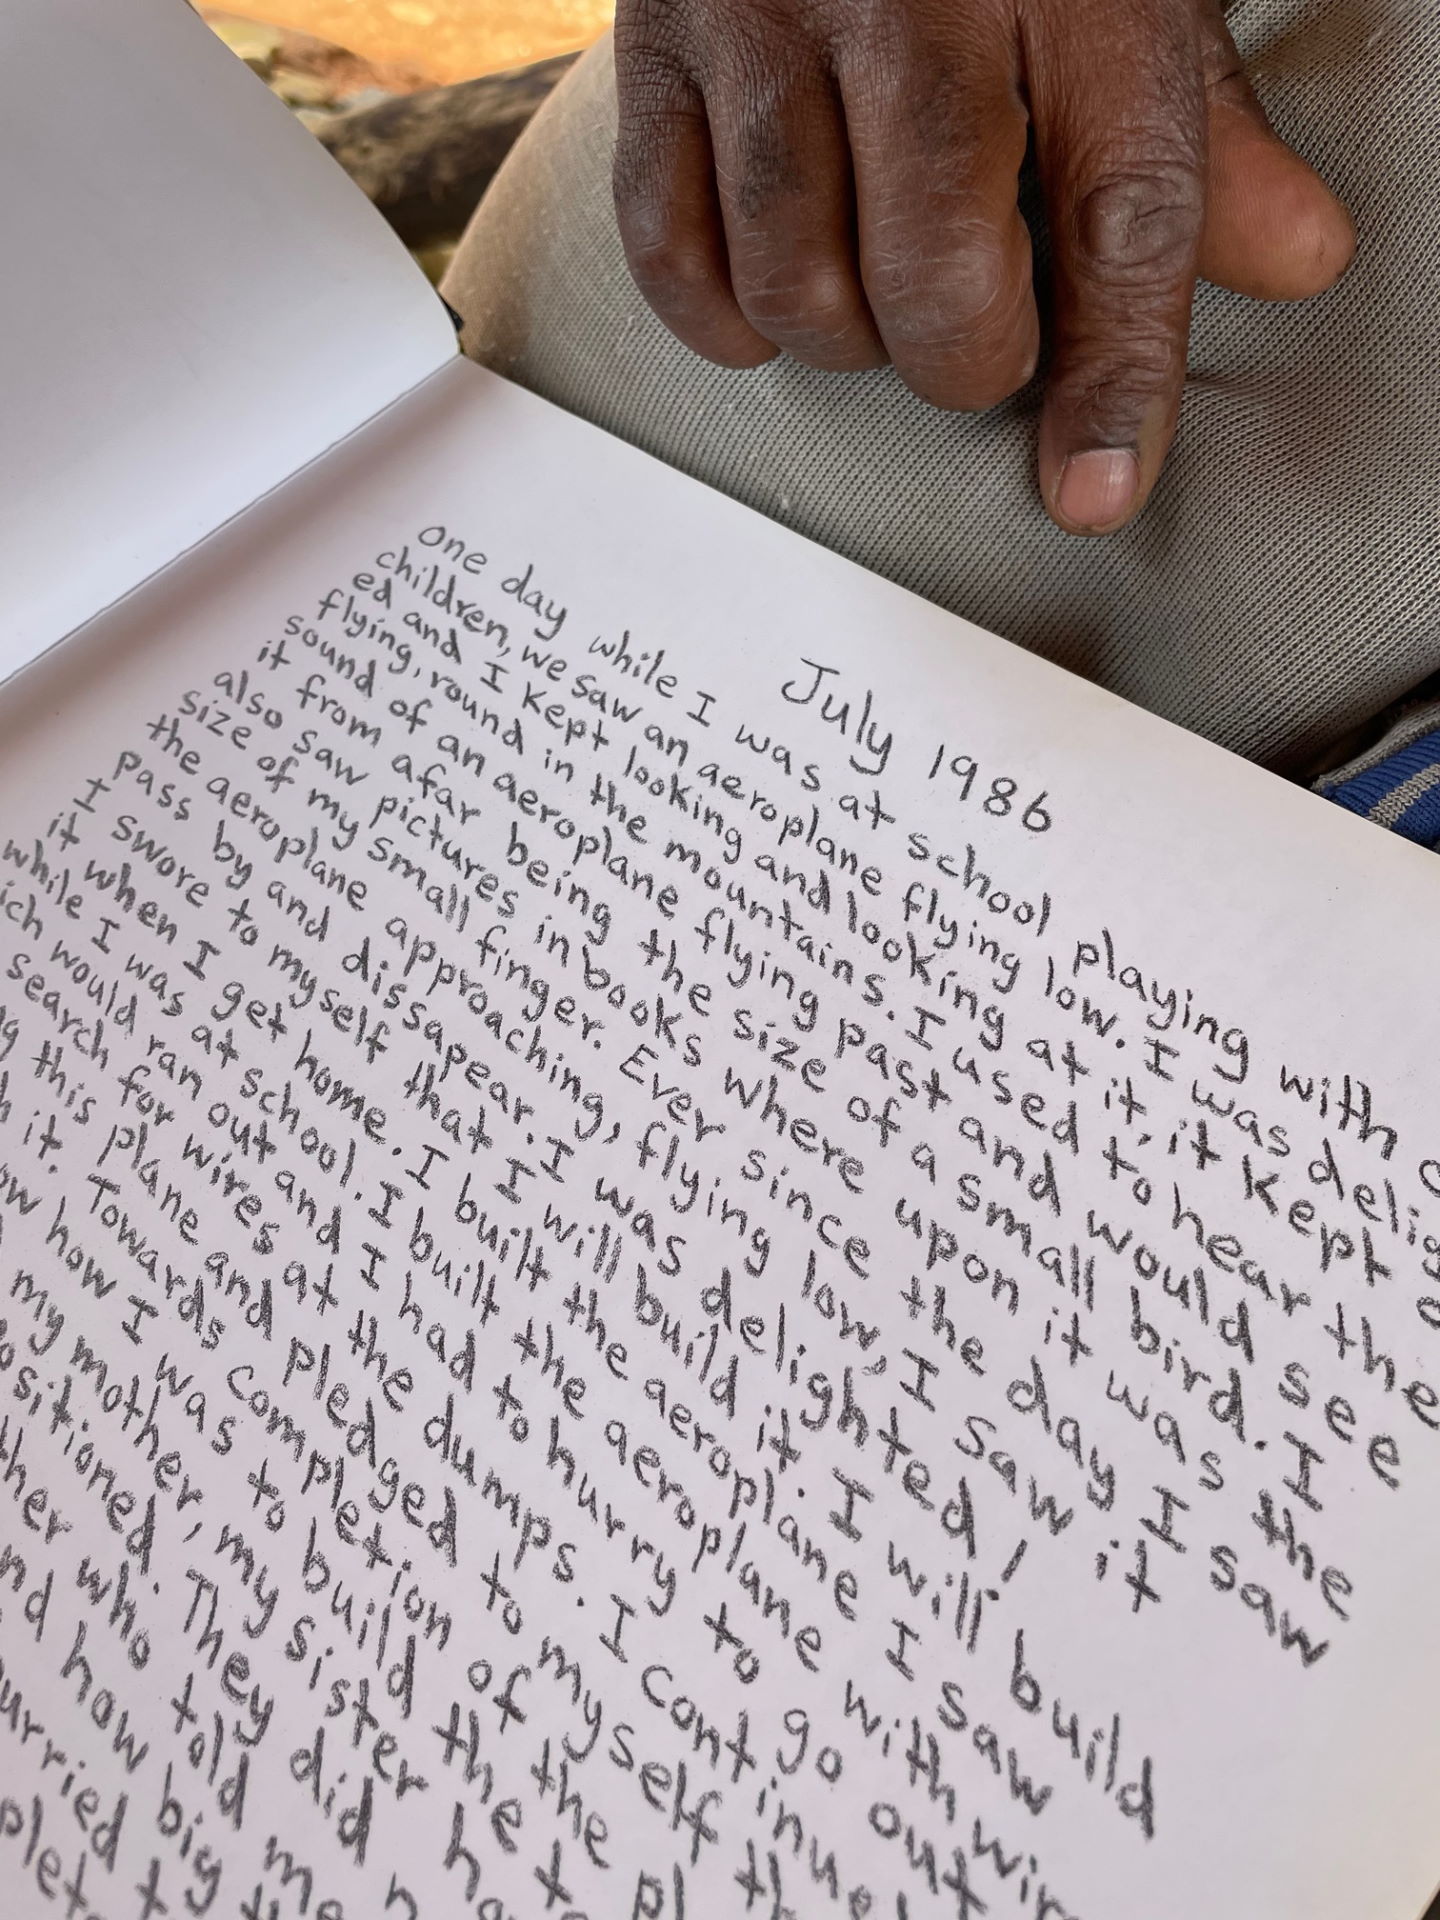 July 1986
One day while I was at school playing with
children, we saw an aeroplane flying low. I was delig
ed and I kept looking and looking at it, it kept
flying, round in the mountains. I used to hear the
sound of an aeroplane flying past and would see
it from afar being the size of a small bird. I
also saw pictures in books where upon it was the
size of my small finger. Ever since the day I saw
the aeroplane approaching, flying low, I saw it
pass by and dissapear. I was delighted!
I swore to myself that I will build it. I will build
it when I get home. I built the aeroplane I saw
while I was at school. I built the aeroplane with wir
ich would ran out and I had to hurry to go out
search for wires at the dumps. I continue
g this plane and pledged to myself th
h it. Towards completion of the pl
ow how I was to build the t
my mother, my sister
ositioned. They did
her who told me
nd how big
urried t
plet